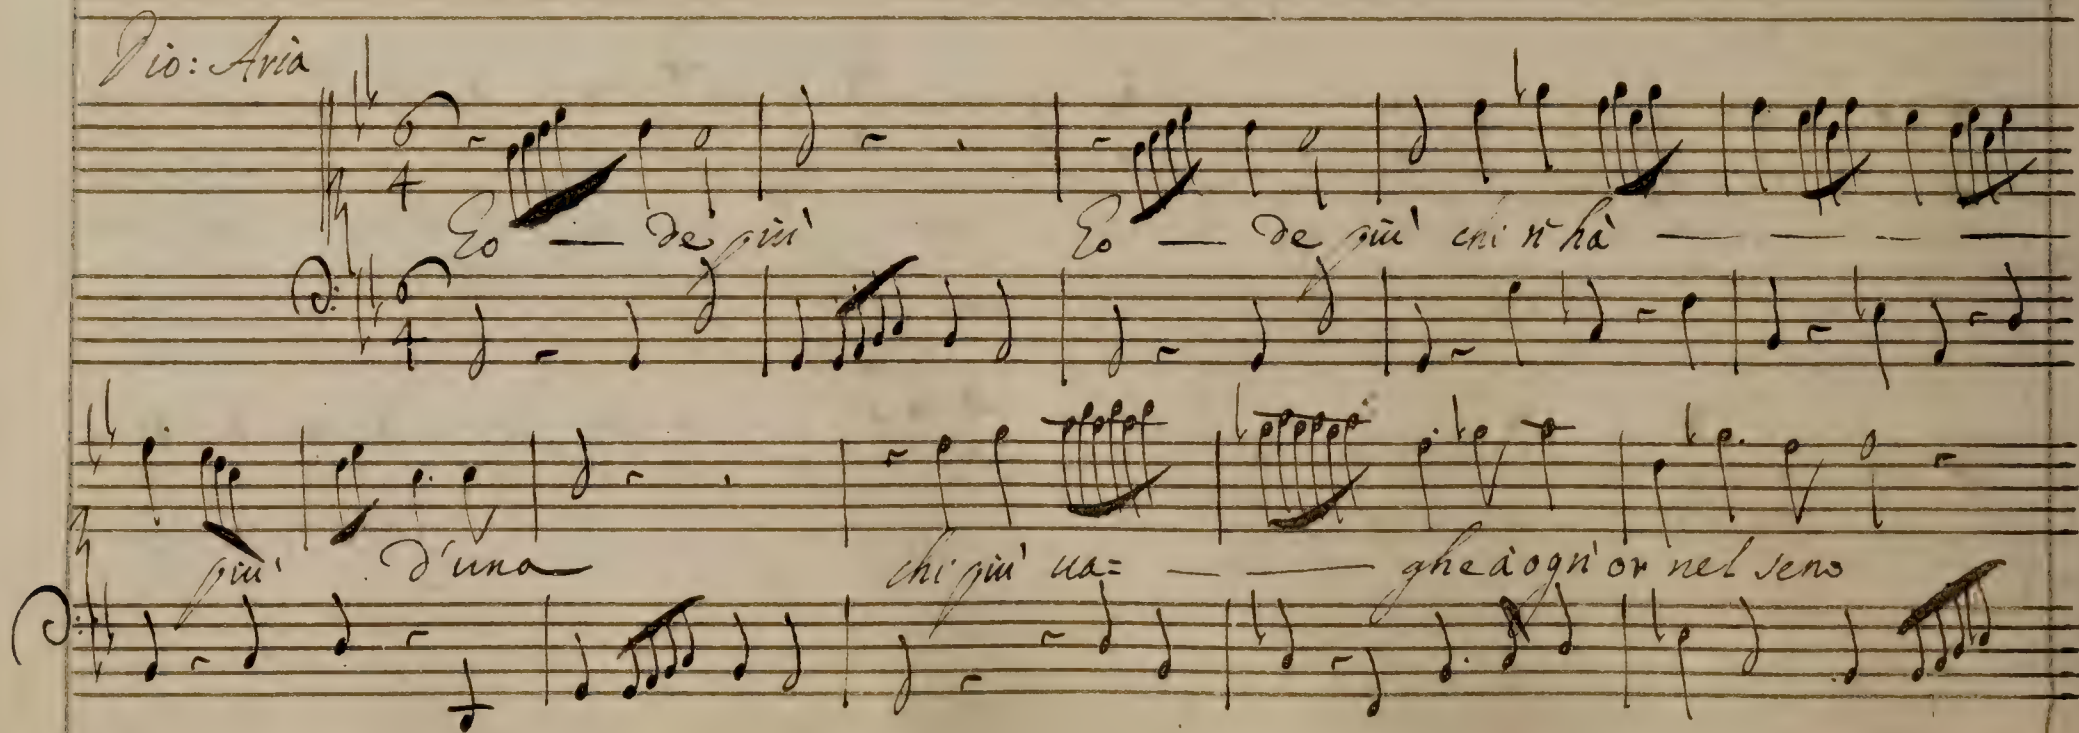 Dio: Aria
6 4
Go — de più Go — de più chi n'hà — — — —
6 4
più d'una chi più ua= — — ghe à ogn'or nel seno